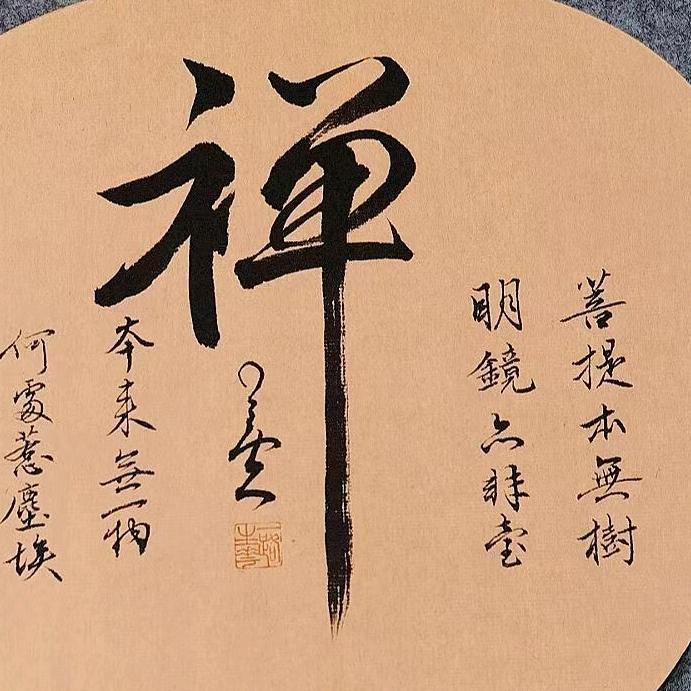 菩提本無樹
明鏡亦非臺
禪
本来無一物
何處惹塵埃